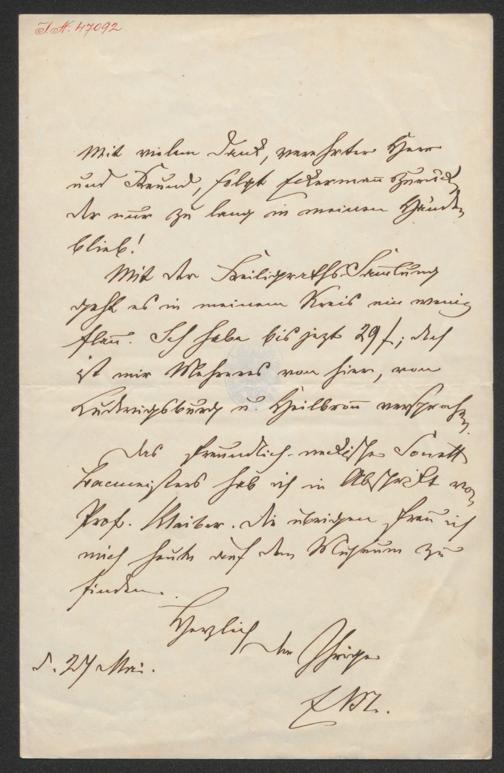 J.N. 47092
Mit vielem Dank, verehrter Herr
und Freund, folgt Eckermann zurück,
der nur zu lang in meinen Händen
blieb!
Mit der Freiligraths-Sammlung
geht es in meinem Kreis ein wenig
flau. Ich habe bis jezt 29 f.; doch
ist mir Mehreres von hier, von
Ludwigsburg u. Heilbronn versprochen.
Das freundlich-neckische Sonett
Bacmeisters hab ich in Abschrift von
Prof. Klaiber. Die übrigen freu ich
mich heute auf dem Museum zu
finden.
Herzlich der Ihrige
d. 27 Mai.
EM.